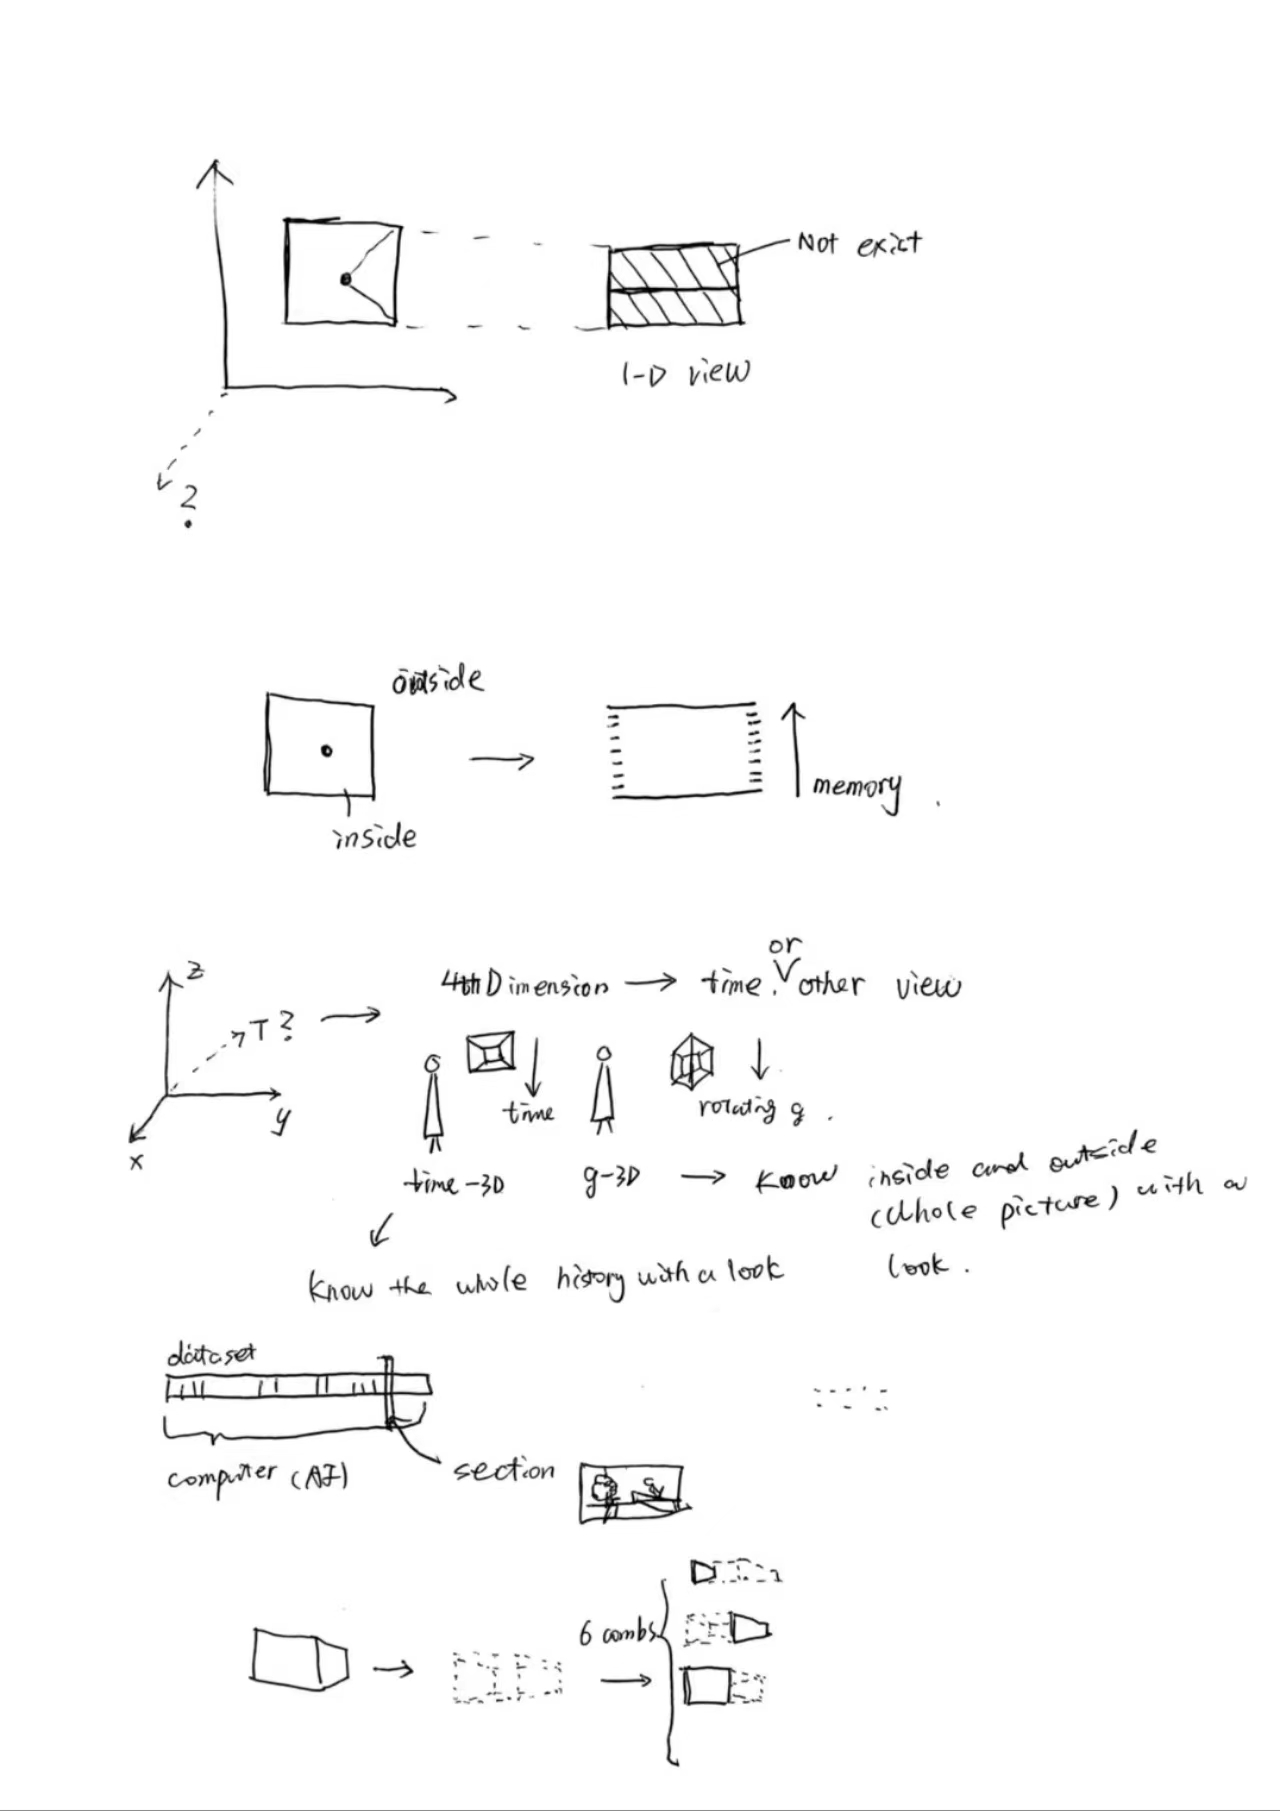 Not exict
1-D view
?
outside
inside
memory
z
T ?
y
x
4th Dimension → time. or other view
time
rotating g.
time-3D
g-3D → know inside and outside
(whole picture) with a
look.
know the whole history with a look
dataset
computer (AI)
section
6 combs